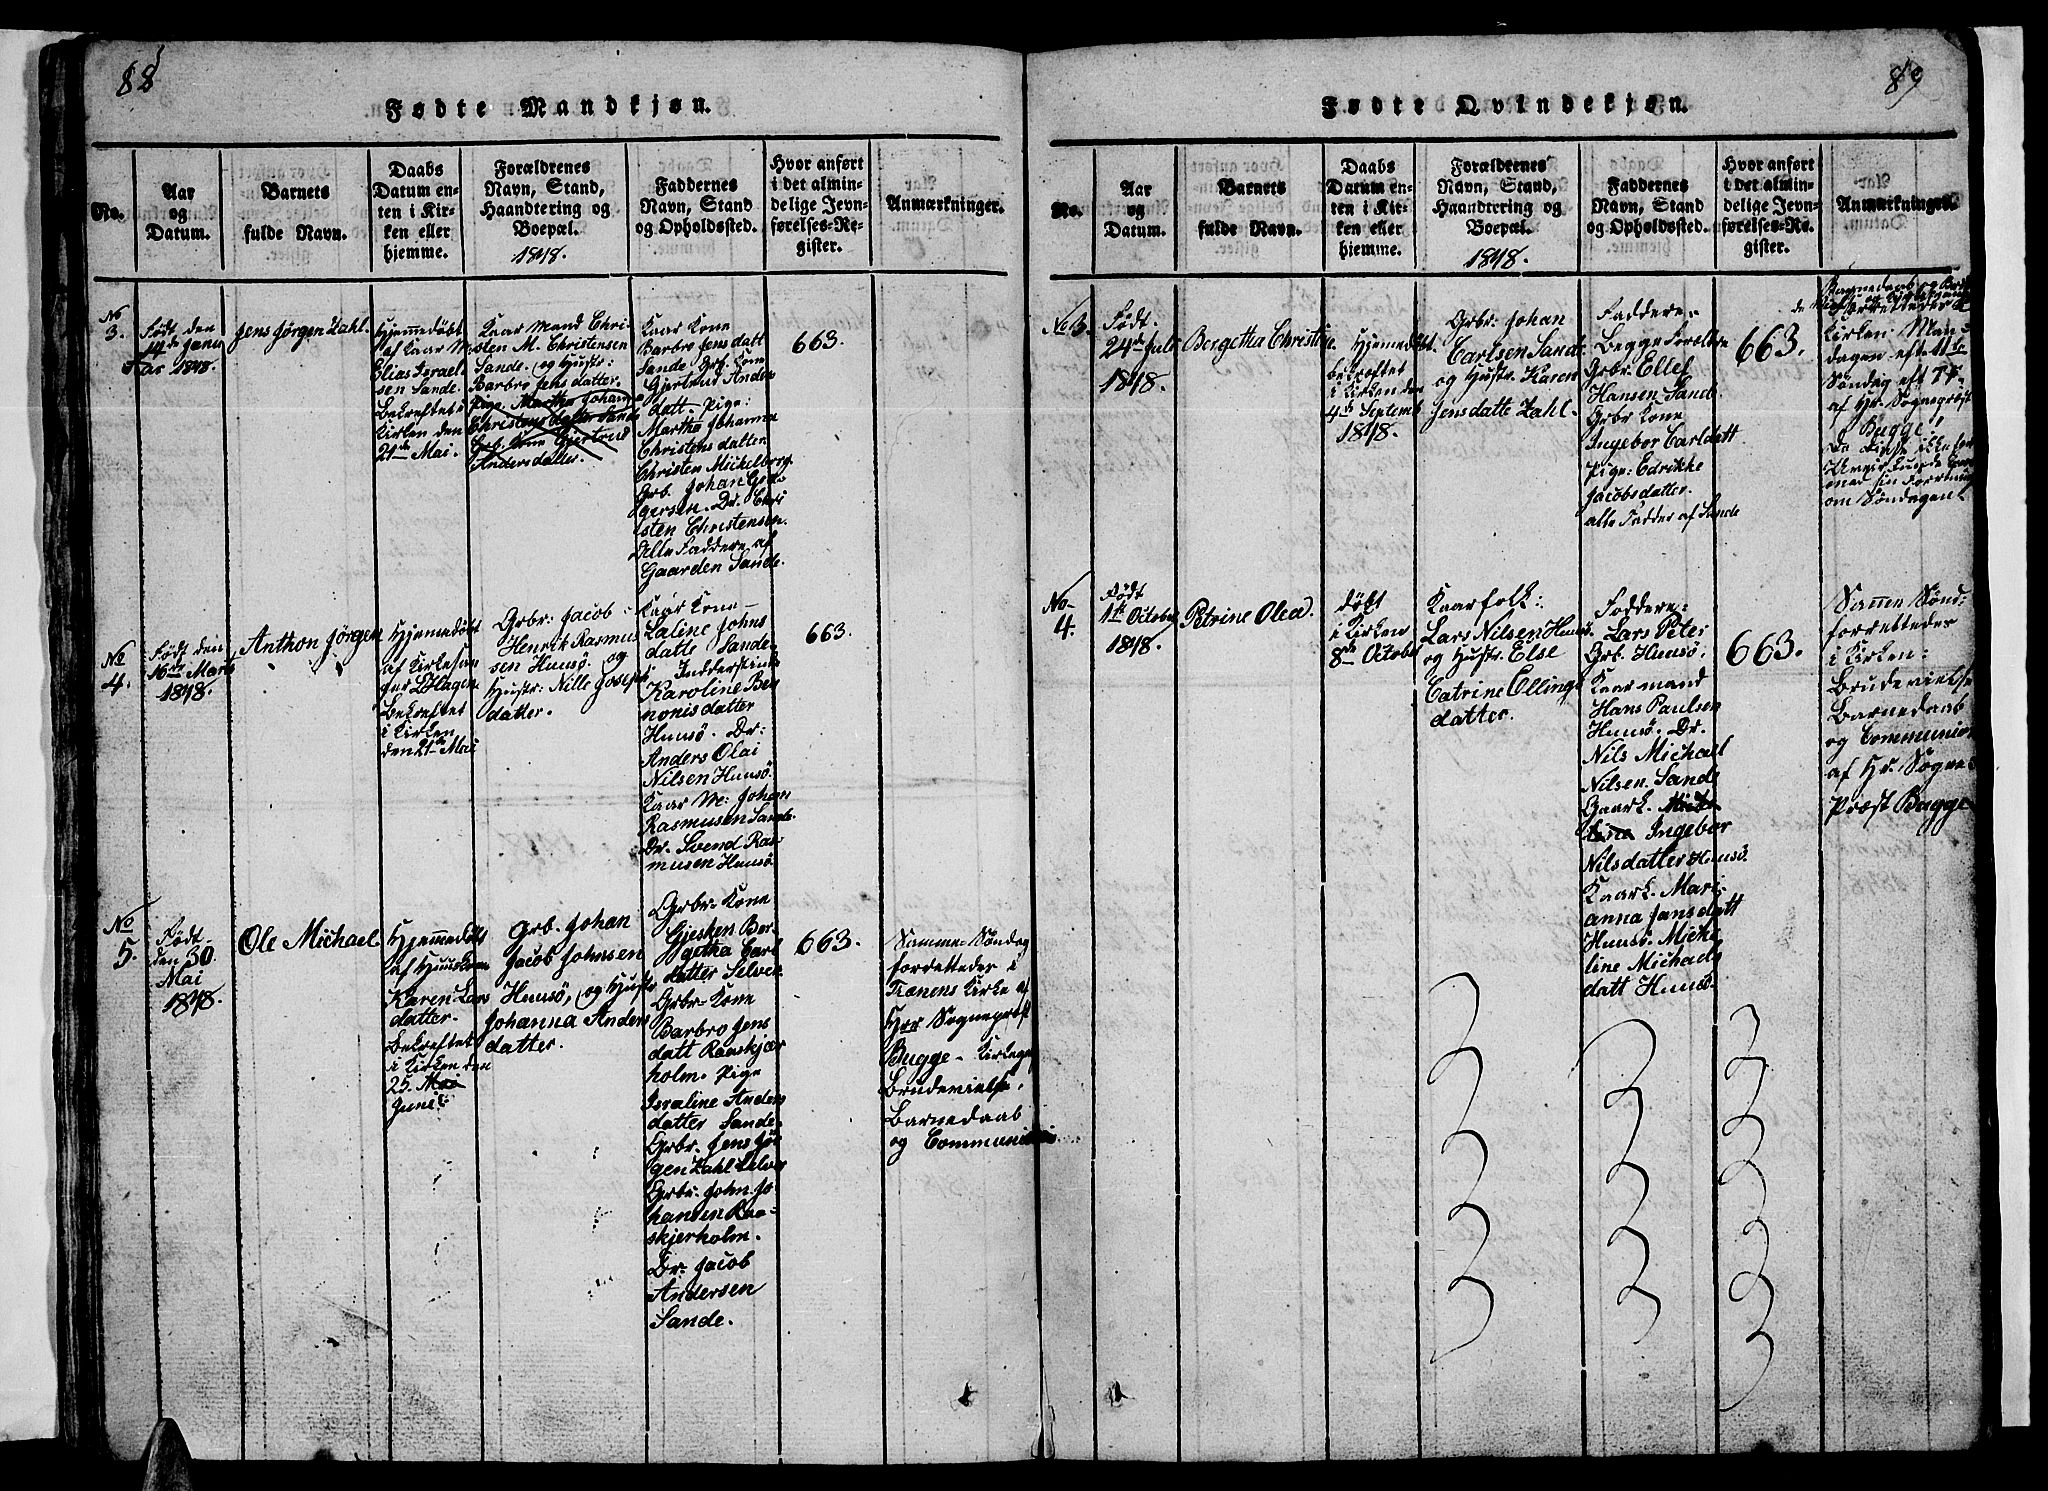 88
Fødte Mandkjøn.
No.
Aar
og
Datum.
Barnets
fulde Navn.
Daabs
Datum en-
ten i Kir-
ken eller
hjemme.
Forældrenes
Navn, Stand,
Haandtering og
Boepæl.
1848.
Faddernes
Navn, Stand
og Opholdssted.
Hvor anført
i det almin-
delige Jevn-
førelses-Re-
gister.
Anmærkninger.
No
3.
Født den
14de Janu
ar 1848.
Jens Jørgen Zahl.
Hjemmedøbt
af Kaar M
Elias Israel
sen Sande.
Bekreftet i
Kirken den
21de Mai.
Kaar Mand Chri-
sten M. Christensen
Sande. og Hustr:
Barbro Jensdatter.
Pige. Martha Johanna
Christensdatter Sande
Grb. Kone Gjertrud
Andersdatter.
Kaar Kone
Barbro Jensdatt
Sande. Grb. Kone
Gjertrud Anders
datt. Pige:
Martha Johanna
Christensdatter
Christen Mickelborg
Grb. Johan Gre-
gersen. Dr. Chri
sten Christensen.
Alle Faddere af
Gaarden Sande.
663.
No
4.
Født den
16de Marts
1848.
Anthon Jørgen
Hjemmedøbt
af Kirkesan
ger L Hagen
Bekreftet
i Kirken
den 21de Mai
Grbr: Jacob
Henrik Rasmus
sen Huusö. og
Hustr: Nille Joseph
datter.
Kaar Kone
Laline Johns
datte Sande.
Inderstinde
Karoline Ben
nonisdatter
Huusö. Dr:
Anders Olai
Nilsen Huusö.
Kaar M: Johan
Rasmusen Sande.
Dr. Svend Ras
musen Huusö.
663.
No
5.
Født
den 30
Mai
1848.
Ole Michael
Hjemmedøbt
af Huuskone
Karen Lars
datter.
Bekreftet
i Kirken den
25. Mai
Juni:
Grb. Johan
Jacob Johnsen
Huusö, og Hustr
Johanna Anders
datter.
Grbr. Kone
Gjesken Ber
getha Carl
datter Selvær
Grbr. Kone
Barbro Jens
datt Raaskjær
holm. Pige
Israline Anders
datter Sande.
Grbr. Jens Jör
gen Zahl Selvær
Grbr. John Jo-
hansen Raa-
skjerholm.
Dr: Jacob
Andersen
Sande.
663.
Samme Søndag
forrettedes i
Trænens Kirke af
Hrr Sognepræst
Bugge. Kirkegang
Brudevielse.
Barnedaab
og Communion
89
Fødte Qvindekjøn.
No.
Aar
og
Datum.
Barnets
fulde Navn.
Daabs
Datum en-
ten i Kir-
ken eller
hjemme.
Forældrenes
Navn, Stand,
Haandtering og
Boepæl.
1848.
Faddernes
Navn, Stand
og Opholdssted.
Hvor anført
i det almin-
delige Jevn-
førelses-Re-
gister.
Anmærkninger.
No 3.
Født.
24de Juli
1848.
Bergetha Christine.
Hjemedöbt.
bekreftet
i Kirken den
4de Septemb
1848.
Grbr: Johan
Carlsen Sande
og Hustr. Karen
Jensdatte Zahl.
Faddere.
Begge Foreldre
Grbr: Ellef
Hansen Sande.
Grbr Kone
Ingebor Carldatt
Pige: Edrikke
Jacobsdatter.
alle Fadder af Sande
663.
Barnedaab og
forrettedes i
Kirken Man-
dagen efter 11te
Søndag eft Tr.
af Hr. Sognepræst
Bugge.
om Søndagen!
No
4.
Født
1ste October
1848.
Petrine Olea.
Døbt
i Kirken
8de October
Kaarfolk:
Lars Nilsen Huusö
og Hustr. Else
Catrine Ellings
datter.
Faddere:
Lars Peter
Grb. Huusö.
Kaar mand
Hans Paulsen
Huusö. Dr.
Nils Michael
Nilsen. Sande
Gaark.
Ingebor
Nilsdatter Huusö.
Kaark. Mari-
anna Jansdatt
Huusö. Miche
line Michaels
datt Huusö.
663.
Samme Sönd:
forrettedes
i Kirken:
Brudevielse
Barnedaab
og Communion
af Hr. Sogne
Præst Bugge